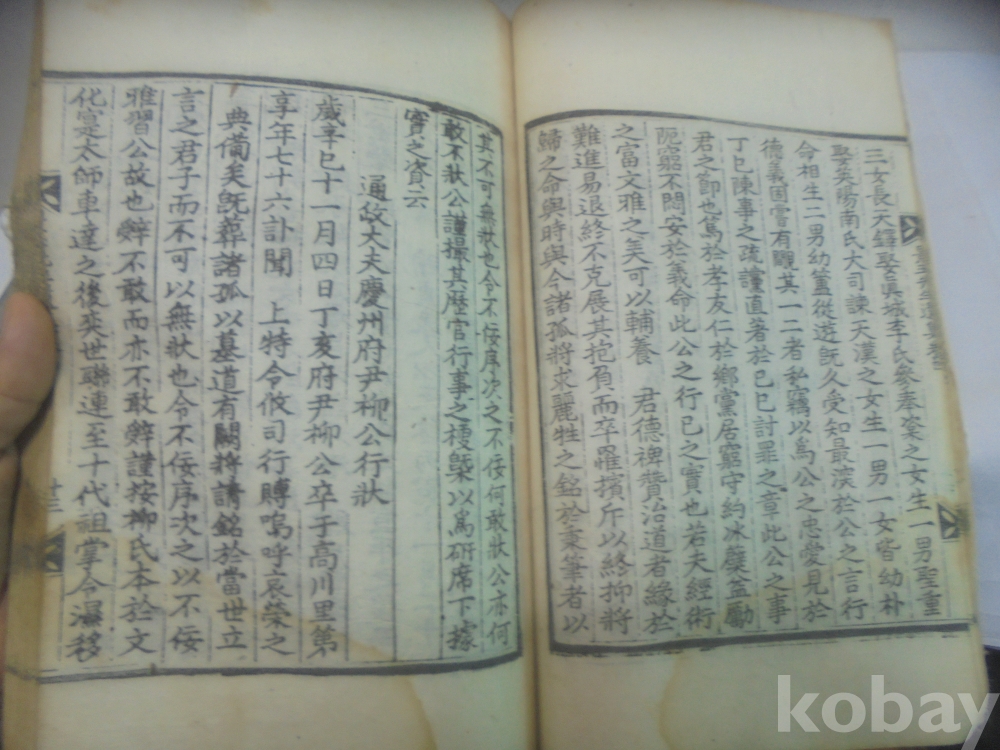 三女長天鐸娶興城李氏參奉棐之女生一男聖重
娶英陽南氏大司諫天漢之女生一男一女皆幼朴
命相生二男幼蓋從遊旣久受知最深於公之言行
德義固嘗有覸其一二者私竊以爲公之忠愛見於
丁巳陳事之疏謹直著於己巳討罪之章此公之事
君之節也篤於孝友仁於鄉黨居窮守約冰蘗益勵
阨窮不閔安於義命此公之行己之實也若夫經術
之富文雅之美可以輔養 君德裨贊治道者緣於
難進易退終不克展其抱負而卒罹擯斥以終抑將
歸之命與時與今諸孤將求麗牲之銘於秉筆者以
其不可無狀也令不佞序次之不佞何敢狀公亦何
敢不狀公謹撮其歷官行事之梗槩以爲硏席下據
實之資云
通政大夫慶州府尹柳公行狀
歲辛巳十一月四日丁亥府尹柳公卒于高川里第
享年七十六訃聞 上特令攸司行賻嗚呼哀榮之
典備矣旣葬諸孤以墓道有闕將請銘於當世立
言之君子而不可以無狀也令不佞序次之以不佞
雅習公故也辭不敢而亦不敢辭謹按柳氏本於文
化寔太師車達之後奕世聯連至十代祖掌令濕移
廿三
kobay